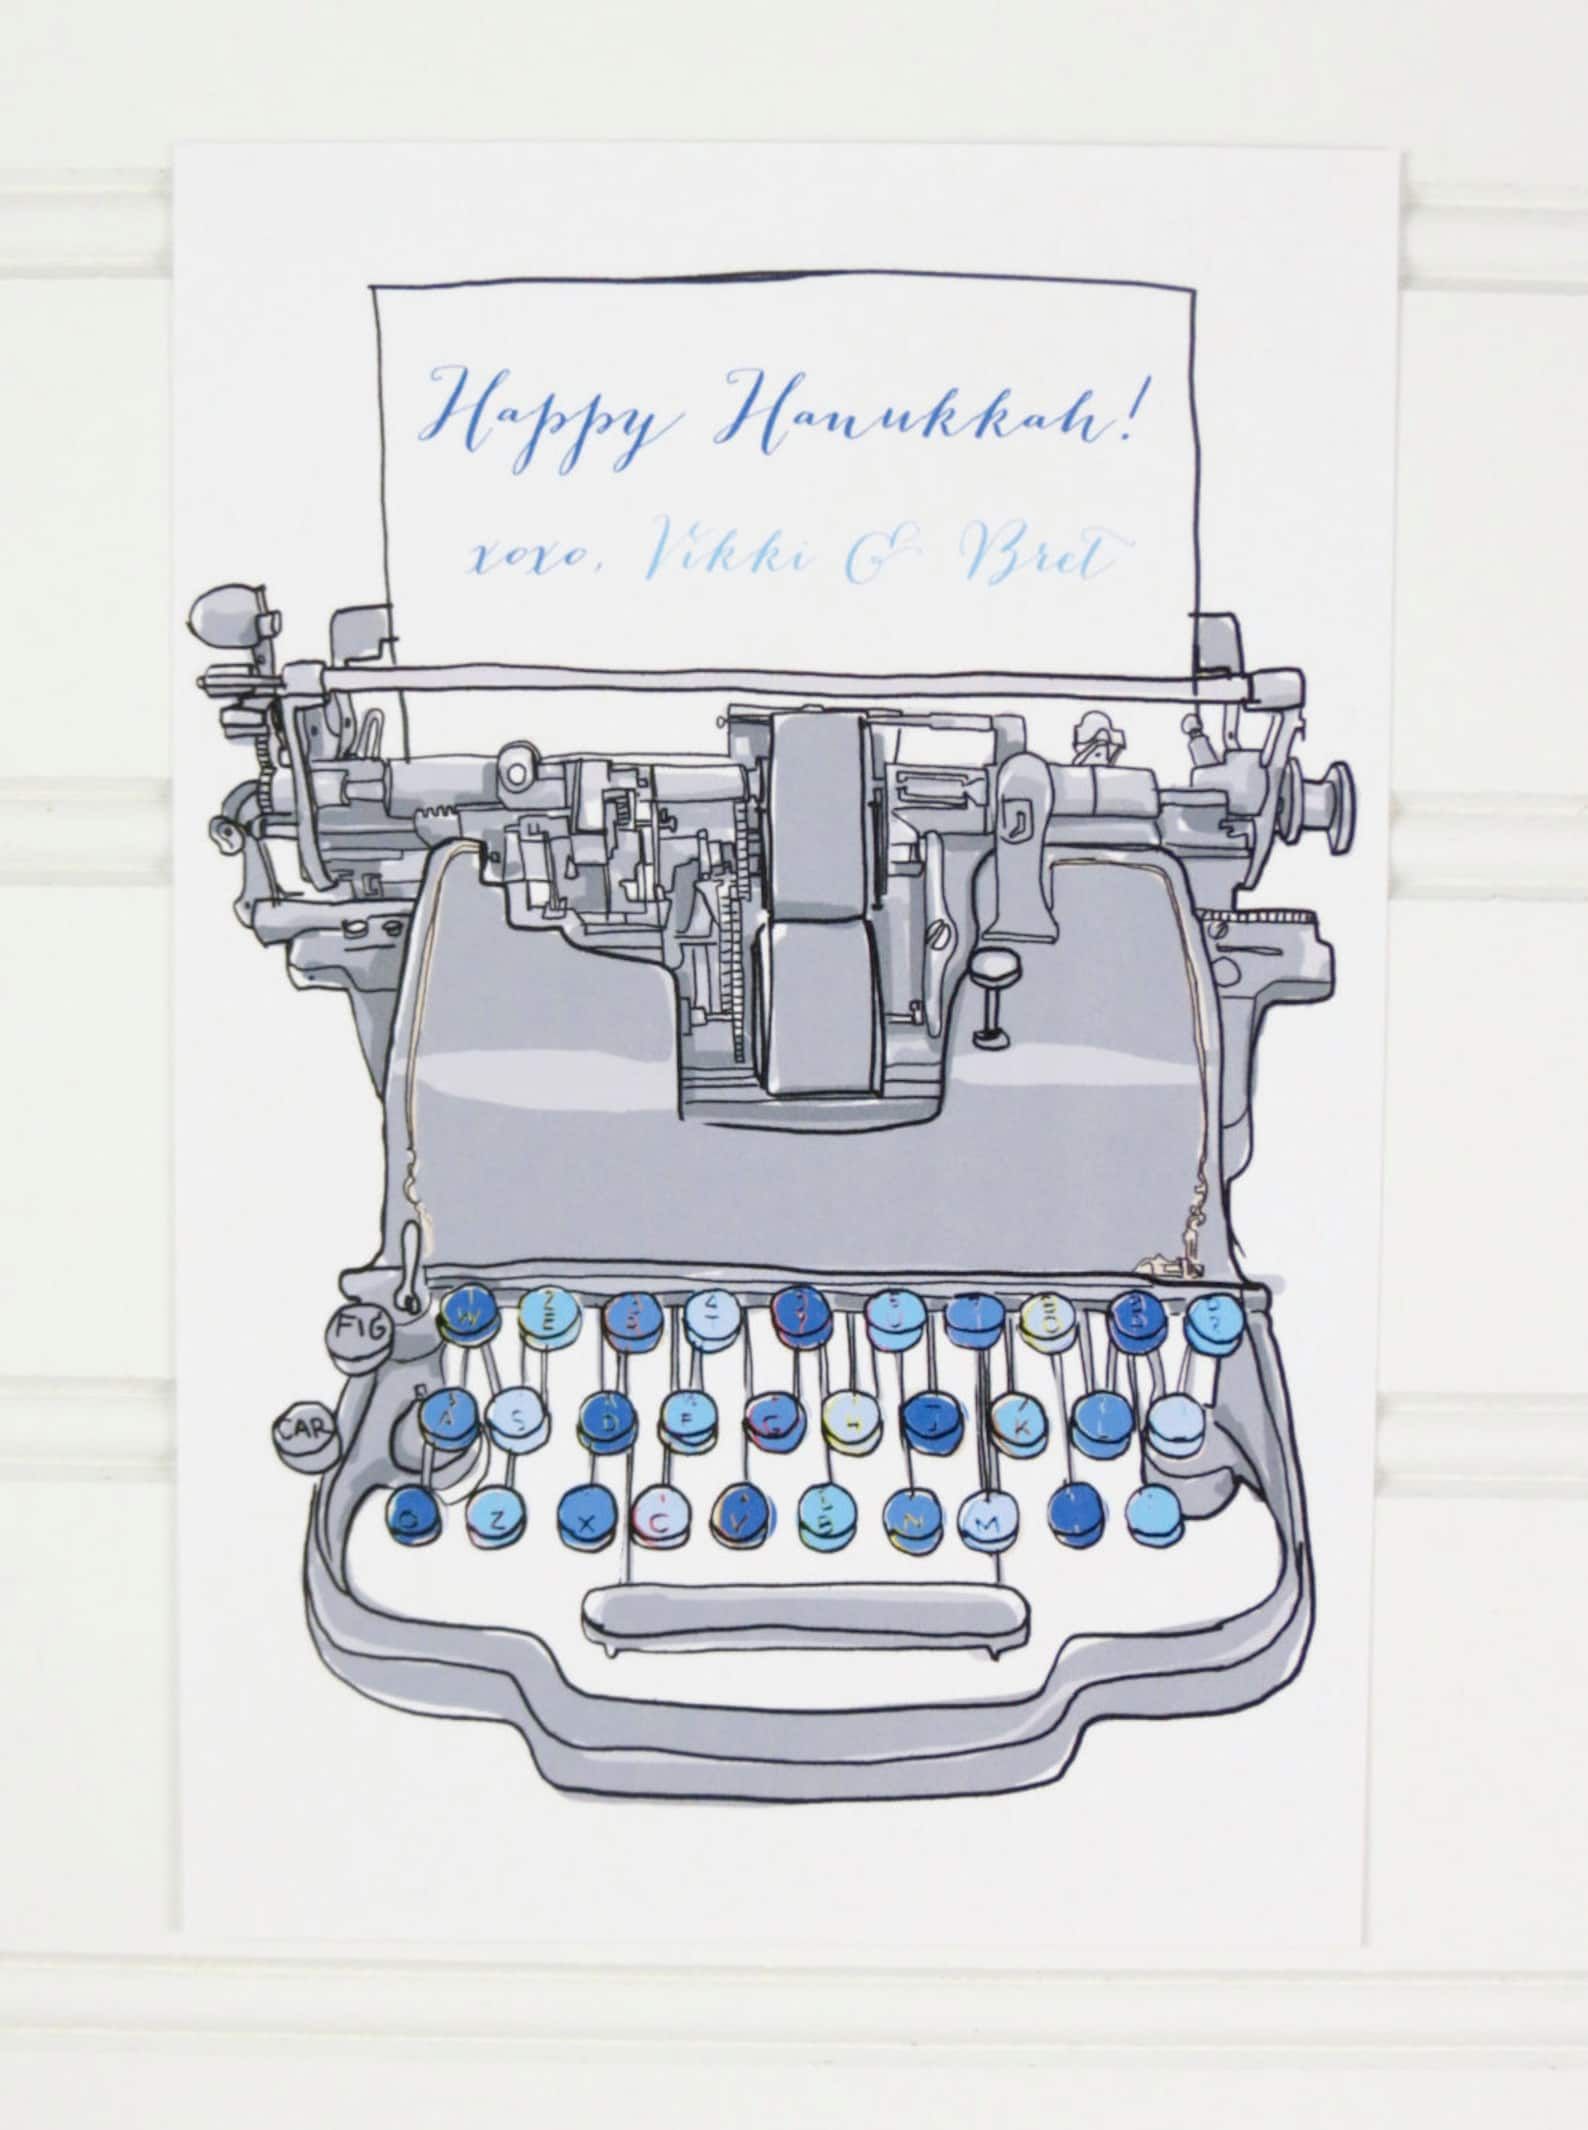 Happy Hanukkah!
xoxo, Vikki & Bret
FIG
W E
CAR
A S D F G H J K L
Z X C V B N M